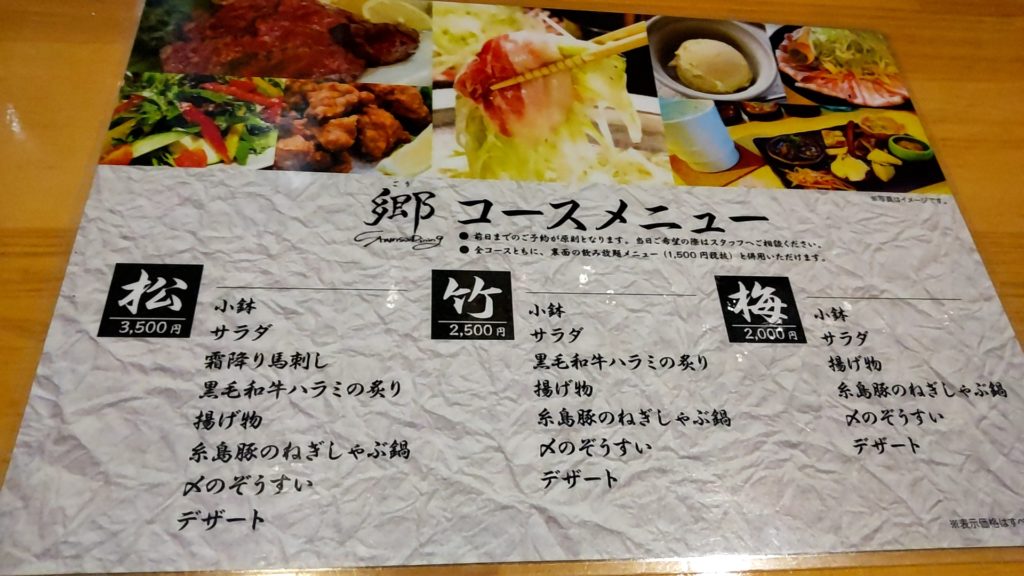 ※写真はイメージです。
ごう
郷
Dining
コースメニュー
● 前日までのご予約が原則となります。当日ご希望の際はスタッフへご相談ください。
● 全コースともに、裏面の飲み放題メニュー(1,500円税抜)と併用いただけます。
松
3,500円
小鉢
サラダ
霜降り馬刺し
黒毛和牛ハラミの炙り
揚げ物
糸島豚のねぎしゃぶ鍋
〆のぞうすい
デザート
竹
2,500円
小鉢
サラダ
黒毛和牛ハラミの炙り
揚げ物
糸島豚のねぎしゃぶ鍋
〆のぞうすい
デザート
梅
2,000円
小鉢
サラダ
揚げ物
糸島豚のねぎしゃぶ鍋
〆のぞうすい
デザート
※表示価格はすべ